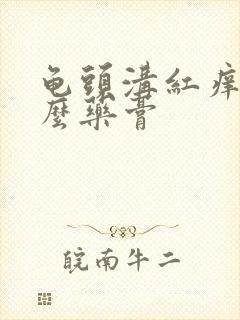 龟頭溝紅痒
麼藥膏
皖南牛二